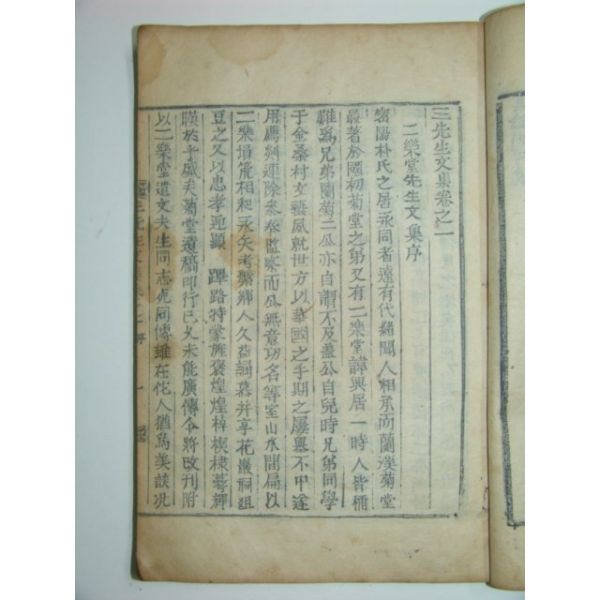 三先生文集卷之一
二樂堂先生文集序
密陽朴氏之居永同者遠有代緖聞人相承而蘭溪菊堂
最著於國初菊堂之弟又有二樂堂諱興居一時人皆稱
難爲兄弟蘭菊二公亦自謂不及蓋公自兒時兄弟同學
于金桑村文藝夙就世方以華國之手期之屢擧不中遂
用薦斜運除參奉監察而公無意功名等室山水間扁以
二樂堂相起永矢考槃鄕人久益謌慕幷享花巖祠俎
豆之又以忠孝迎顯 蹕路特蒙旌褒煌煌棹楔棣萼輝
暎於乎盛矣菊堂遺稿印行已久未能廣傳今將改刊附
以二樂堂遺文夫生同志死同傳雖在佗人猶爲美談况
三先生文集 卷之一 序 一